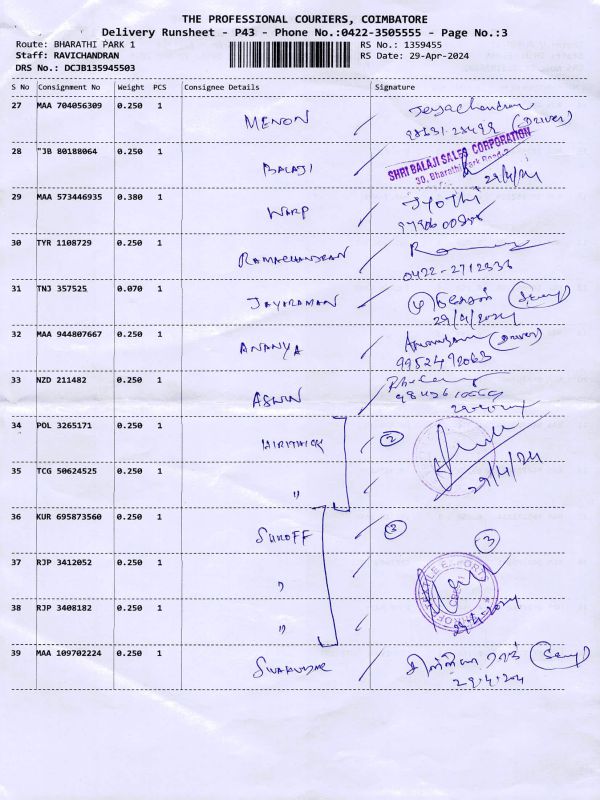 THE PROFESSIONAL COURIERS, COIMBATORE
Delivery Runsheet - P43 - Phone No.:0422-3505555 - Page No.:3
Route: BHARATHI PARK 1 RS No.: 1359455
Staff: RAVICHANDRAN RS Date: 29-Apr-2024
DRS No.: DCJB135945503
S No Consignment No Weight PCS Consignee Details Signature
27 MAA 704056309 0.250 1 MENON Jeyachandran
(Driver)
28 "JB 80188064 0.250 1 BALAJI SHRI BALAJI SALES CORPORATION
30, Bharathi Park Road
29/4/24
29 MAA 573446935 0.380 1 WARP Jyothi
30 TYR 1108729 0.250 1 RAMACHANDRAN
0422-2712333
31 TNJ 357525 0.070 1 JAYARAMAN
29/4/2024
32 MAA 944807667 0.250 1 ANANYA (Driver)
9952492063
33 NZD 211482 0.250 1 ASWIN
34 POL 3265171 0.250 1 HIRITHICK 2
35 TCG 50624525 0.250 1 "
29/4/24
36 KUR 695873560 0.250 1 SUROFF 3 3
37 RJP 3412052 0.250 1 "
38 RJP 3408182 0.250 1 "
29-4-2024
39 MAA 109702224 0.250 1 SIVAKUMAR
29.4.2024